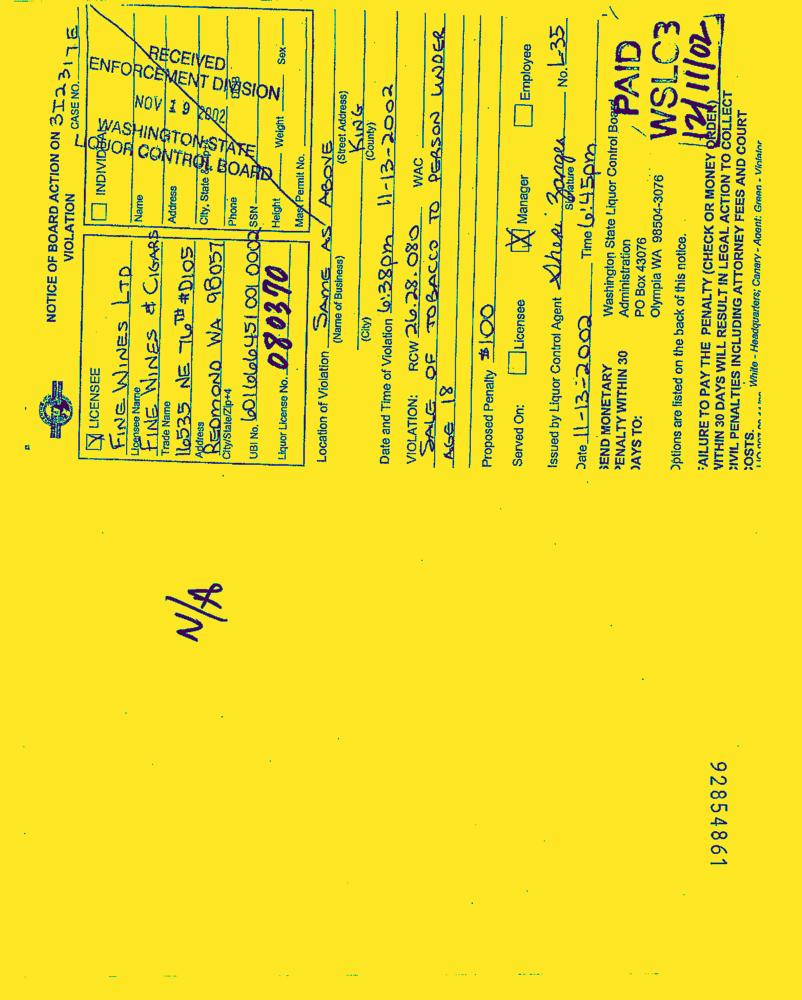 NOTICE OF BOARD ACTION ON 3I2317E
VIOLATION CASE NO.
☑ LICENSEE
FINE WINES LTD
Licensee Name
FINE WINES & CIGARS
Trade Name
16535 NE 76TH #D105
Address
REDMOND WA 98057
City/State/Zip+4
UBI No. 601666451 001 0002
Liquor License No. 080370
☐ INDIVIDUAL
Name
Address
City, State &
Phone
SSN
Height Weight Sex
Mast Permit No.
RECEIVED
ENFORCEMENT DIVISION
NOV 19 2002
WASHINGTON STATE
LIQUOR CONTROL BOARD
Location of Violation SAME AS ABOVE
(Name of Business) (Street Address)
KING
(City) (County)
Date and Time of Violation 6:38pm 11-13-2002
VIOLATION: RCW 26.28.080 WAC
SALE OF TOBACCO TO PERSON UNDER
AGE 18
Proposed Penalty $100
Served On: ☐ Licensee ☒ Manager ☐ Employee
Issued by Liquor Control Agent No. L-35
Signature
Date 11-13-2002 Time 6:45pm
SEND MONETARY
PENALTY WITHIN 30
DAYS TO:
Washington State Liquor Control Board
Administration
PO Box 43076
Olympia WA 98504-3076
PAID
WSLC3
12/11/02
Options are listed on the back of this notice.
FAILURE TO PAY THE PENALTY (CHECK OR MONEY ORDER)
WITHIN 30 DAYS WILL RESULT IN LEGAL ACTION TO COLLECT
CIVIL PENALTIES INCLUDING ATTORNEY FEES AND COURT
COSTS.
White - Headquarters; Canary - Agent; Green - Violator
N/A
92854861